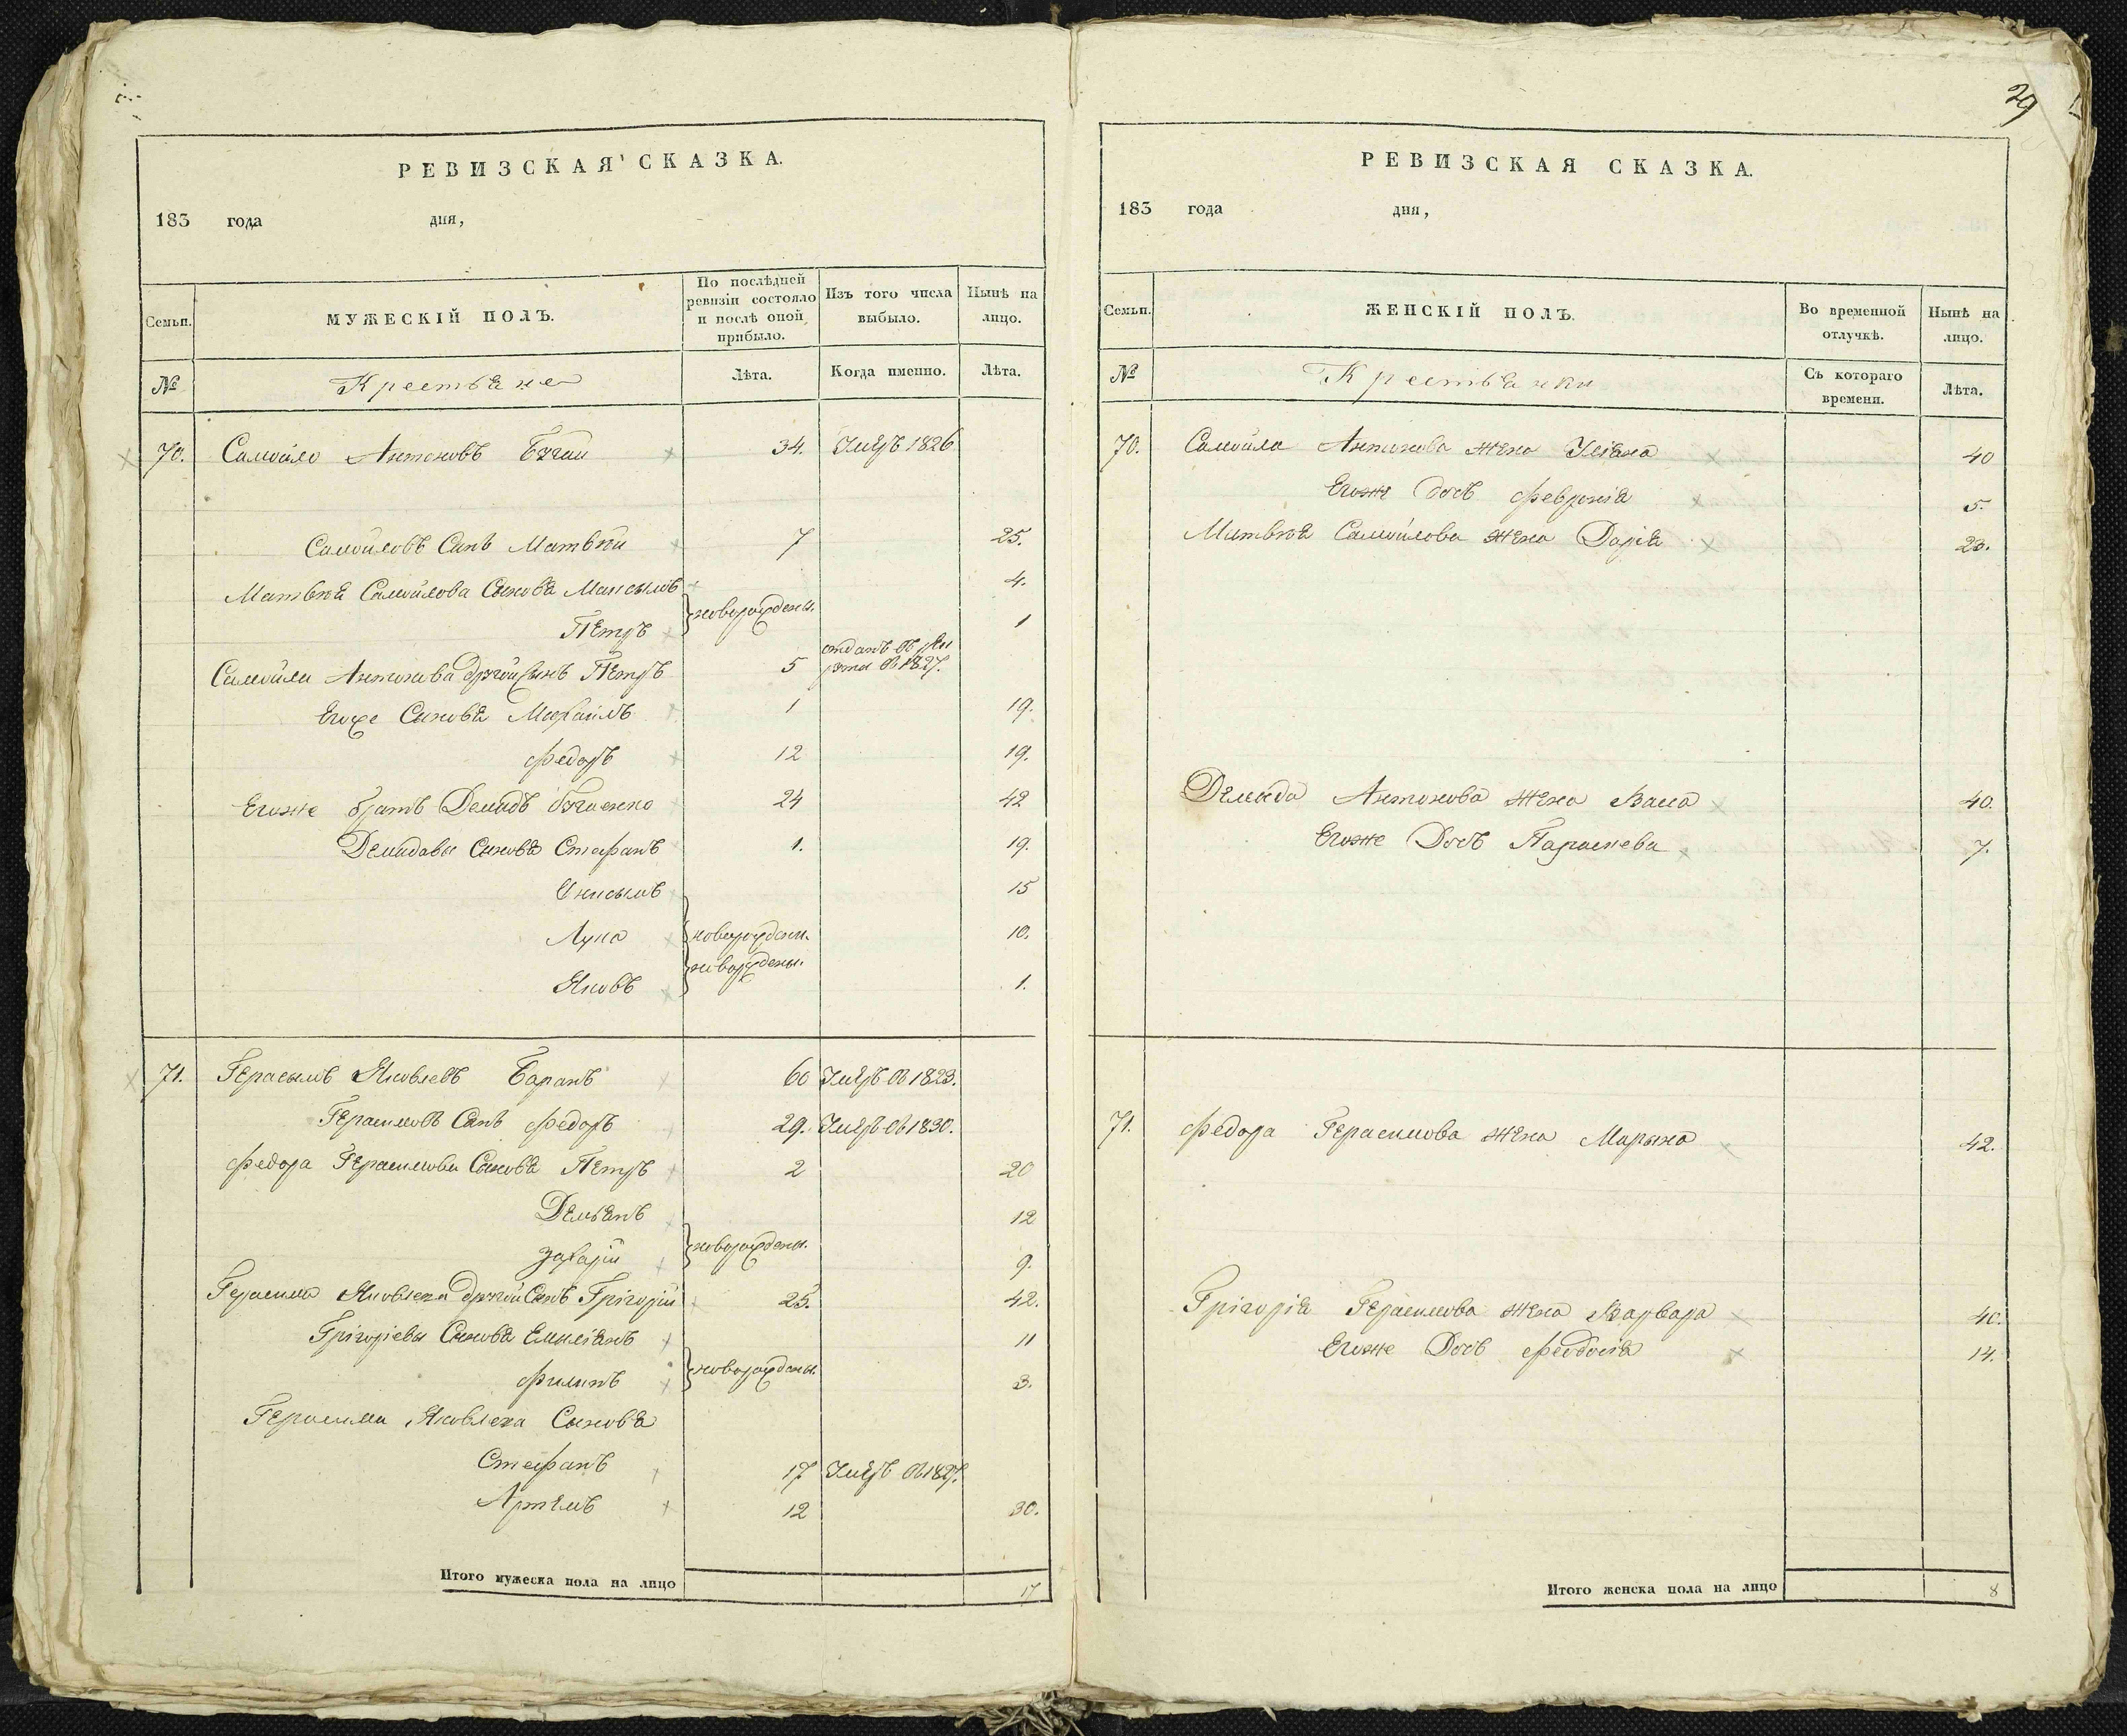 29
РЕВИЗСКАЯ СКАЗКА.
183 года дня,
Семьи. МУЖЕСКІЙ ПОЛЪ. По послѣдней ревизіи состояло и послѣ оной прибыло. Изъ того числа выбыло. Нынѣ на лицо.
№ Крестьяне Лѣта. Когда именно. Лѣта.
70. Самойло Антоновъ 34. Умеръ 1826
Самойловъ Сынъ Матвѣй 7 25.
Матвѣя Самойлова Сыновья 4.
Петръ новорожденны. 1
Самойла Антонова другой Сынъ Петръ 5 отданъ въ рекруты въ 1827.
Егоже Сыновья Михаилъ 1 19.
Федоръ 12 19.
Егоже братъ Демидъ 24 42
Демидовы Сыновья Стефанъ 1. 19.
15
Лука новорожденн. 10.
новорждены.
Яковъ 1.
71. Герасымъ Яковлевъ Баранъ 60 Умеръ въ 1823.
Герасимовъ Сынъ Федоръ 29. Умеръ въ 1830.
Федора Герасимова Сыновья Петръ 2 20
Демьянъ 12
Захарій новорождены. 9.
Герасима Яковлева другой Сынъ Григорій 25. 42.
Григоріевы Сыновья Емиліянъ 11
Филипъ новорождены. 3.
Герасима Яковлева Сыновья
Стефанъ 17 Умеръ въ 1827.
Артемъ 12 30.
Итого мужеска пола на лицо 17
РЕВИЗСКАЯ СКАЗКА.
183 года дня,
Семьи. ЖЕНСКІЙ ПОЛЪ. Во временной отлучкѣ. Нынѣ на лицо.
№ Крестьянки Съ котораго времени. Лѣта.
70. Самойла Антонова жена Уліяна 40
Егоже дочь Февронія 5.
Матвѣя Самойлова жена Дарія 23.
Демида Антонова жена Васа 40.
Егоже Дочь Параскева 7.
71. Федора Герасимова жена Марына 42.
Григорія Герасимова жена Варвара 40.
Егоже Дочь Феодосія 14.
Итого женска пола на лицо 8